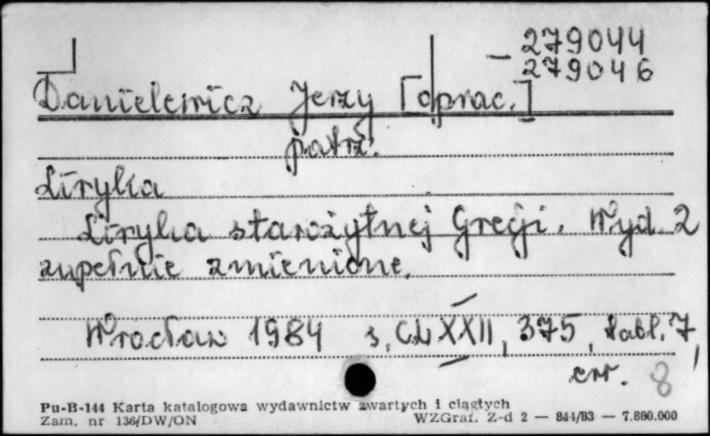 279044
– 279046
Danielewicz Jerzy [oprac.]
patrz.
Liryka
Liryka starożytnej Grecji. Wyd. 2
zupełnie zmienione.
Wrocław 1984 s. CLXXII, 375, tabl. 7,
err. 8
Pu-B-144 Karta katalogowa wydawnictw zwartych i ciągłych
Zam. nr 136/DW/ON WZGraf. Z-d 2 — 844/83 — 7.880.000